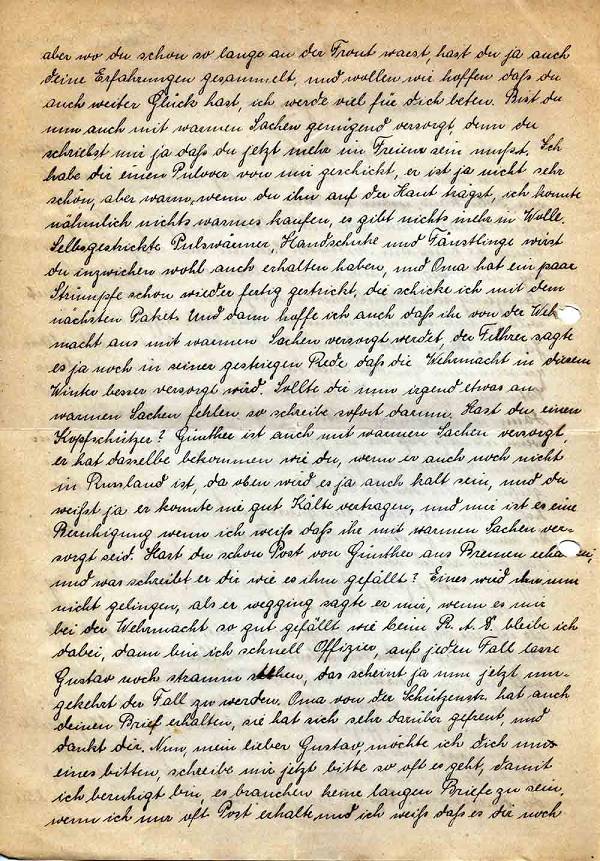 aber wo du schon so lange an der Front warst, hast du ja auch
deine Erfahrungen gesammelt, und wollen wir hoffen daß du
auch weiter Glück hast, ich werde viel für dich beten. Bist du
nun auch mit warmen Sachen genügend versorgt, denn du
schriebst mir ja daß du jetzt mehr im Freien sein mußt. Ich
habe dir einen Pulover von mir geschickt, er ist ja nicht sehr
schön, aber warm, wenn du ihn auf der Haut trägst, ich konnte
nähmlich nichts warmes kaufen, es gibt nichts mehr in Wolle.
Selbsgestrickte Pulswärmer, Handschuhe und Fäustlinge wirst
du inzwichen wohl auch erhalten haben, und Oma hat ein paar
Strümpfe schon wieder fertig gestrickt, die schicke ich mit dem
nächsten Paket. Und dann hoffe ich auch daß ihr von der Weh
macht aus mit warmen Sachen versorgt werdet, der Führer sagte
es ja noch in seiner gestriegen Rede daß die Wehrmacht in diesem
Winter besser versorgt wird. Sollte dir nun irgend etwas an
warmen Sachen fehlen so schreibe sofort darum. Hast du einen
Kopfschützer? Günther ist auch mit warmen Sachen versorgt,
er hat dasselbe bekommen wie du, wenn er auch noch nicht
in Russland ist, da oben wird es ja auch kalt sein, und du
weißt ja er konnte nie gut Kälte vertragen, und mir ist es eine
Beruhigung wenn ich weiß daß ihr mit warmen Sachen ver-
sorgt seid. Hast du schon Post von Günther aus Bremen
und was schreibt er dir wie es ihm gefällt? Eines wird ihm nun
nicht gelingen, als er wegging sagte er mir, wenn es mir
bei der Wehrmacht so gut gefällt wie beim R. A. D. bleibe ich
dabei, dann bin ich schnell Offizier, auf jeden Fall lasse
Gustav noch stramm stehen, das scheint ja nun jetzt um-
gekehrt der Fall zu werden. Oma von der Schützenstr. hat auch
deinen Brief erhalten, sie hat sich sehr darüber gefreut, und
dankt dir. Nun, mein lieber Gustav, möchte ich dich um
eines bitten, schreibe mir jetzt bitte so oft es geht, damit
ich beruhigt bin, es brauchen keine langen Briefe zu sein,
wenn ich nur oft Post erhalte und ich weiß daß es dir noch